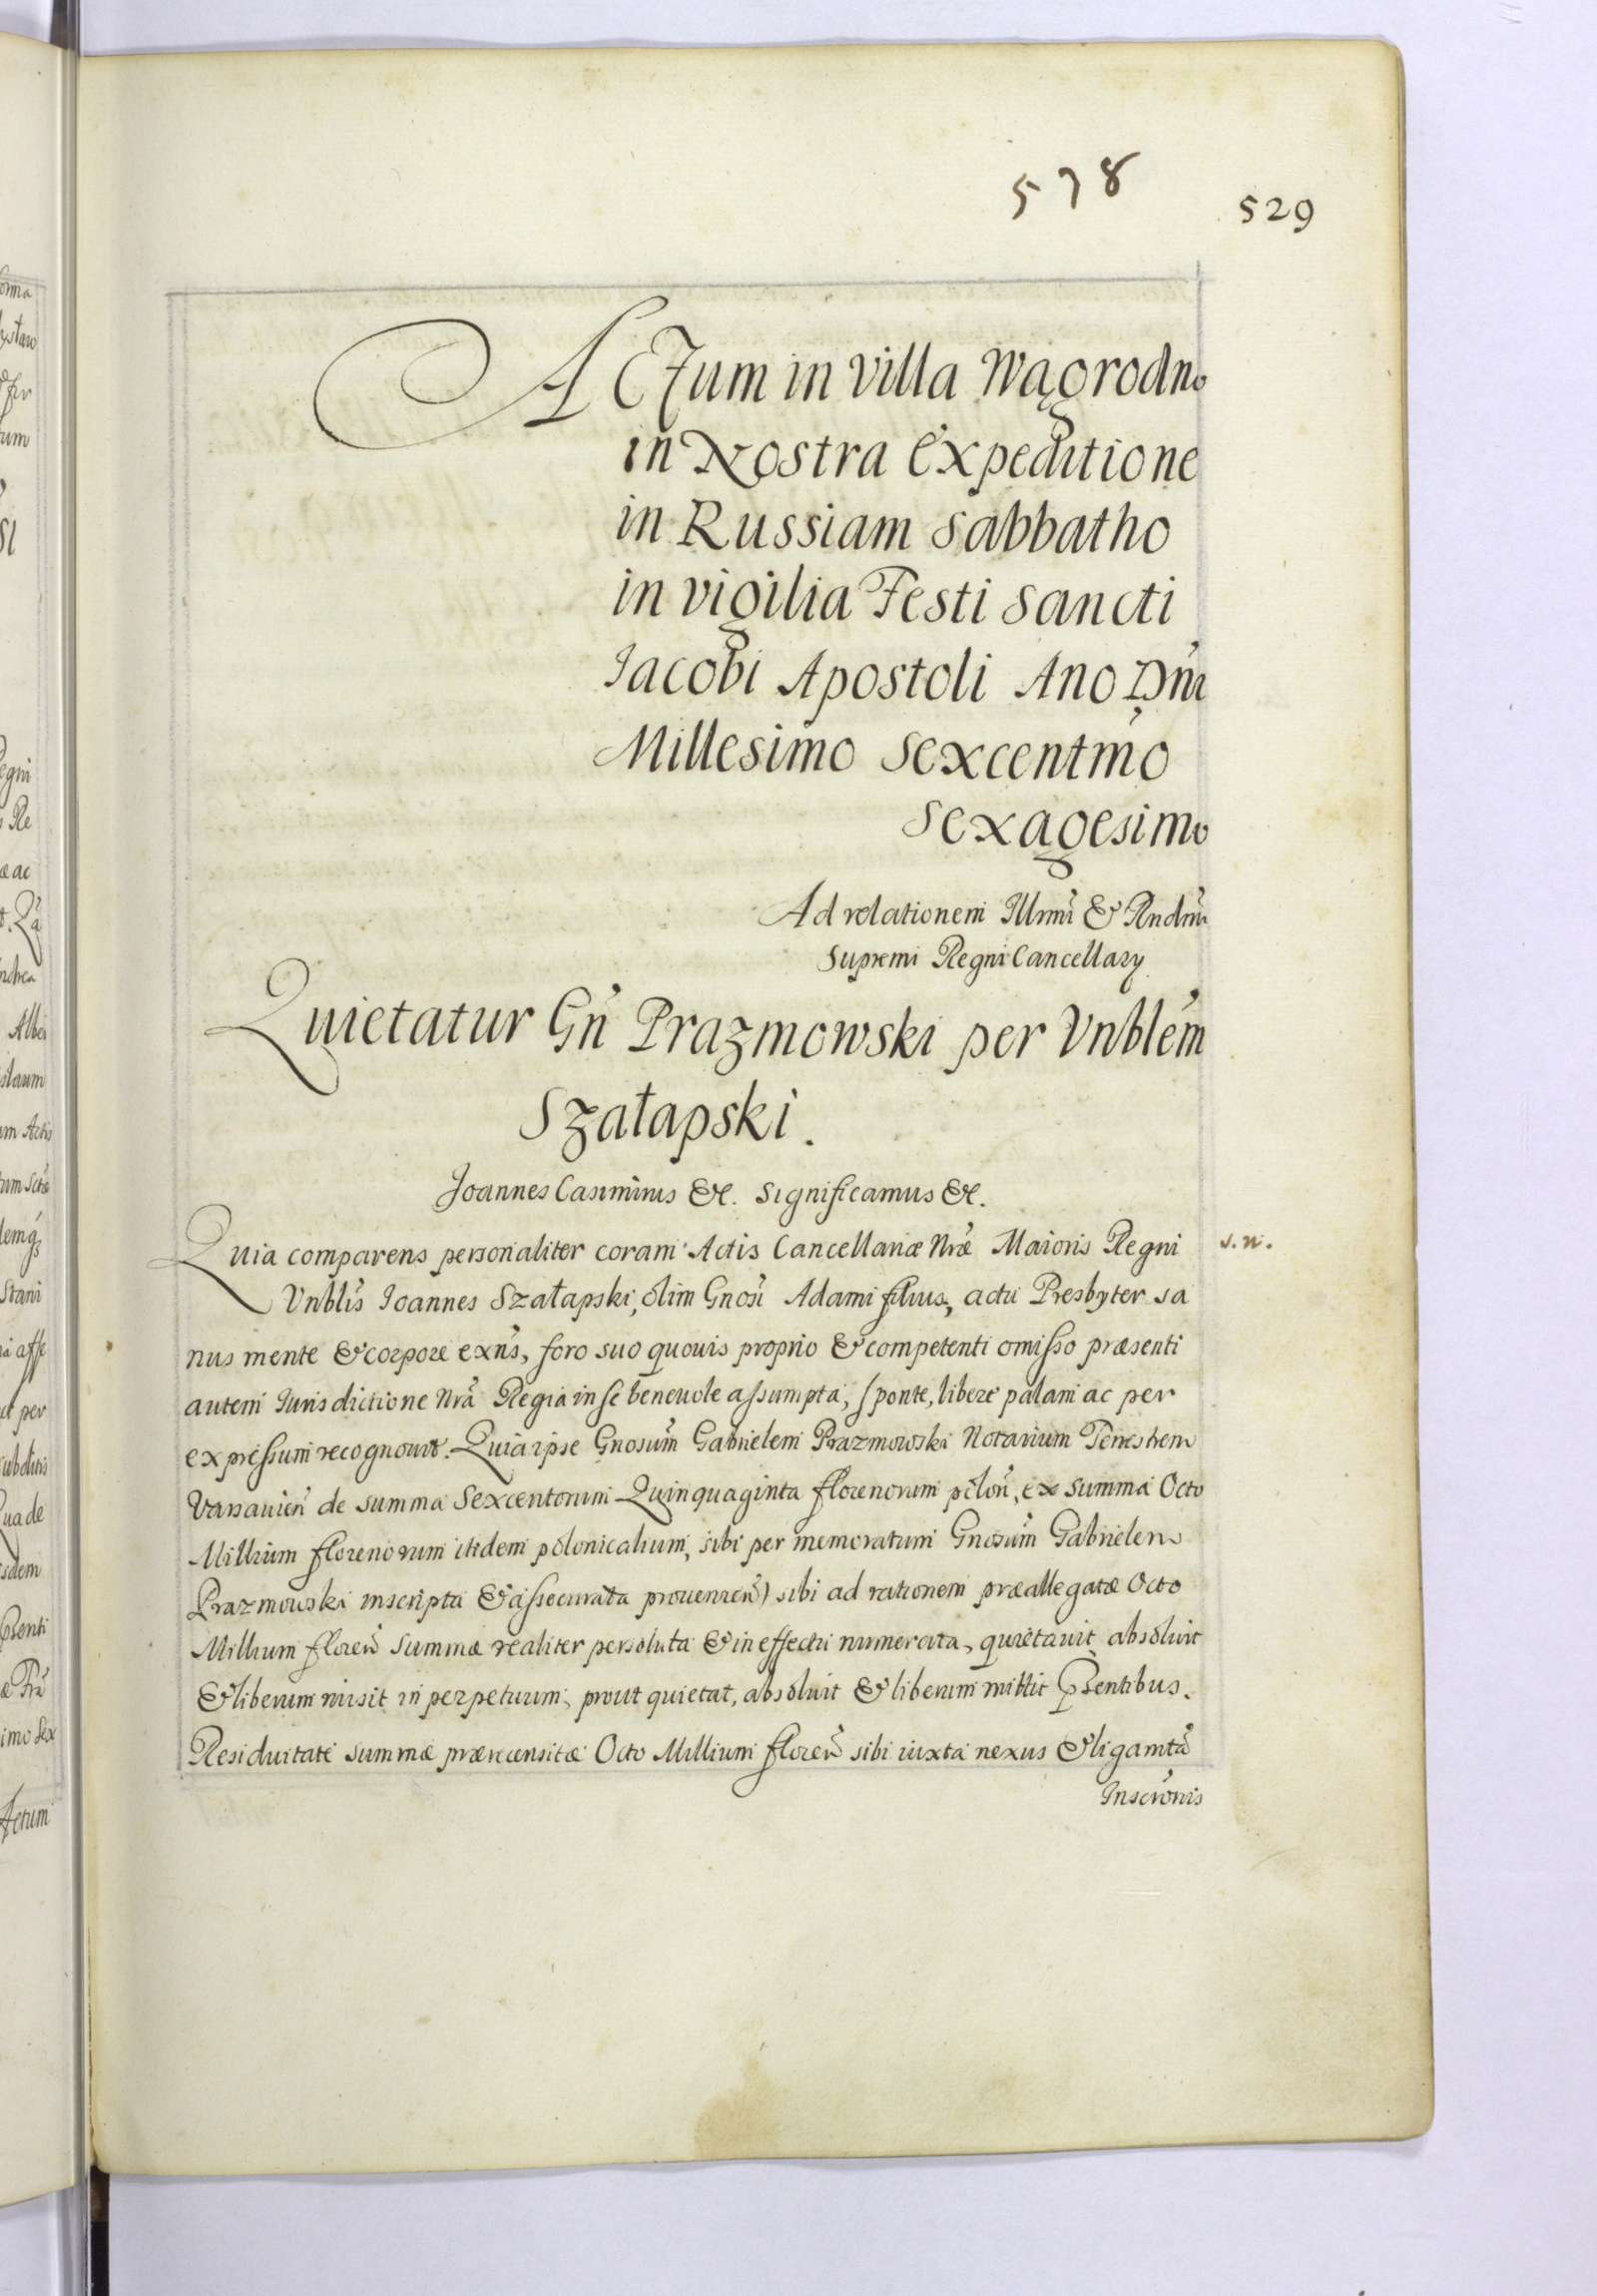 578
529
ACTum in villa Wągrodno
in Nostra Expeditione
in Russiam Sabbatho
in vigilia Festi Sancti
Iacobi Apostoli Ano Dni
Millesimo Sexcentmo
Sexagesimo
Ad relationem Illmi & Rndmi
Supremi Regni Cancellary
Quietatur Gn Prazmowski per Vnblem
Szałapski.
Joannes Casimirus &c. Significamus &c.
Quia comparens personaliter coram Actis Cancellariæ Nræ Maioris Regni
s. n.
Vnblis Ioannes Szałapski, olim Gnosi Adami filius, actu Presbyter sa
nus mente & corpore exns, foro suo quouis proprio & competenti omisso præsenti
autem Iurisdictione Nra Regia in se beneuole assumpta, sponte, libere palam ac per
expressum recognouit. Quia ipse Gnosum Gabrielem Prazmowski Notarium Terrestrem
Varsauien de summa Sexcentorum Quinquaginta florenorum polon, ex summa Octo
Millium florenorum itidem polonicalium, sibi per memoratum Gnosum Gabrielem
Prazmowski inscripta & assecurata prouenien) sibi ad rationem præallegatæ Octo
Millium floren summæ realiter persoluta & in effectu numerata, quietauit absoluit
& liberum misit in perpetuum, prout quietat, absoluit & liberum mittit psentibus.
Residuitate summæ præcensitæ Octo Millium floren sibi iuxta nexus & ligamta
Inscronis